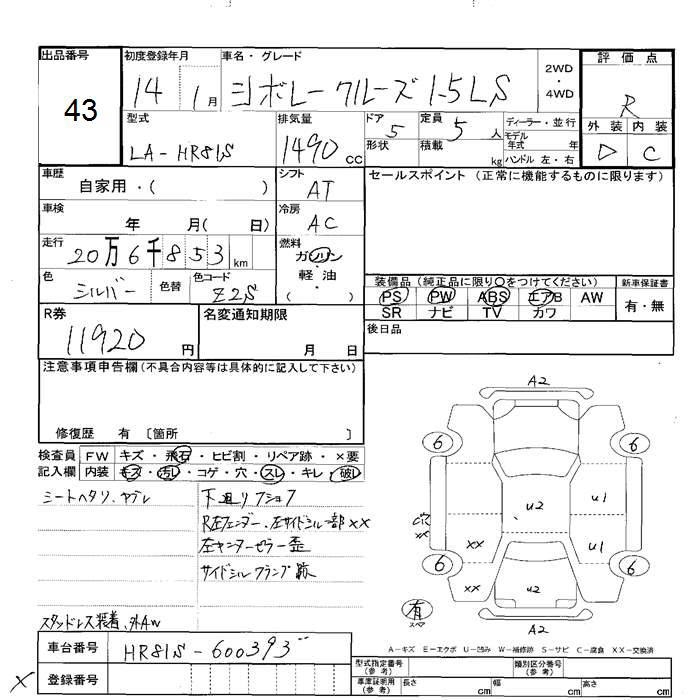 出品番号 43
初度登録年月 14 1月
車名・グレード シボレークルーズ 1.5LS
2WD・4WD
評価点 R
外装 D 内装 C
型式 LA-HR81S
排気量 1490 cc
ドア 5 定員 5 人
形状 積載 kg
ディーラー・並行
モデル年式 年
ハンドル 左・右
車歴 自家用・( )
シフト AT
セールスポイント (正常に機能するものに限ります)
車検 年 月( 日)
冷房 AC
走行 20万6千853km
燃料 ガソリン・軽油・( )
色 シルバー 色替 色コード Z2S
装備品 (純正品に限り○をつけてください) 新車保証書
PS PW ABS エアB AW 有・無
SR ナビ TV カワ
R券 11920 円
名変通知期限 月 日
後日品
注意事項申告欄 (不具合内容等は具体的に記入して下さい)
修復歴 有 〔箇所 〕
検査員記入欄
FW キズ・飛石・ヒビ割・リペア跡・×要
内装 キズ・汚れ・コゲ・穴・スレ・キレ・破レ
シートヘタリ、ヤブレ
下廻りフショク
R左フェンダー、左サイドシル一部××
左センターピラー歪
サイドシルクランプ跡
スタッドレス装着、外AW
A2
6 6
U2 U1
穴 ××
×× U1
6 6
×× U2
有 スペア
A2
A-キズ E-エクボ U-凹み W-補修跡 S-サビ C-腐食 XX-交換済
車台番号 HR81S-600393
× 登録番号
型式指定番号(参考) 類別区分番号(参考)
車庫証明用(参考) 長さ cm 幅 cm 高さ cm